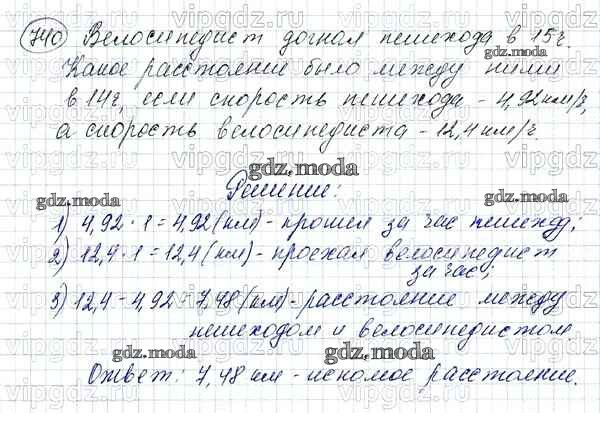 740 Велосипедист догнал пешехода в 15 ч.
Какое расстояние было между ними
в 14 ч, если скорость пешехода - 4,92 км/ч,
а скорость велосипедиста - 12,4 км/ч.
Решение:
1) 4,92 · 1 = 4,92 (км) - прошел за час пешеход;
2) 12,4 · 1 = 12,4 (км) - проехал велосипедист
за час;
3) 12,4 - 4,92 = 7,48 (км) - расстояние между
пешеходом и велосипедистом.
Ответ: 7,48 км - искомое расстояние.
gdz.moda
gdz.moda
gdz.moda
gdz.moda
gdz.moda
gdz.moda
gdz.moda
vipgdz.com